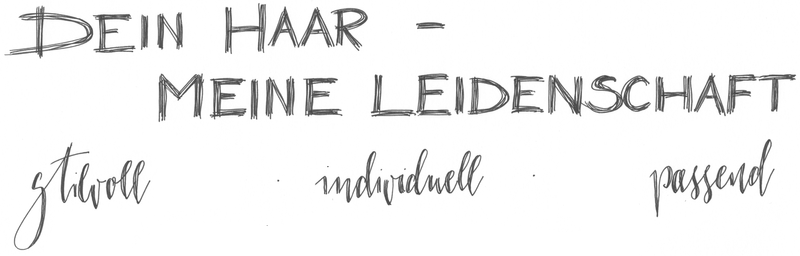 DEIN HAAR –
MEINE LEIDENSCHAFT
stilvoll · individuell · passend